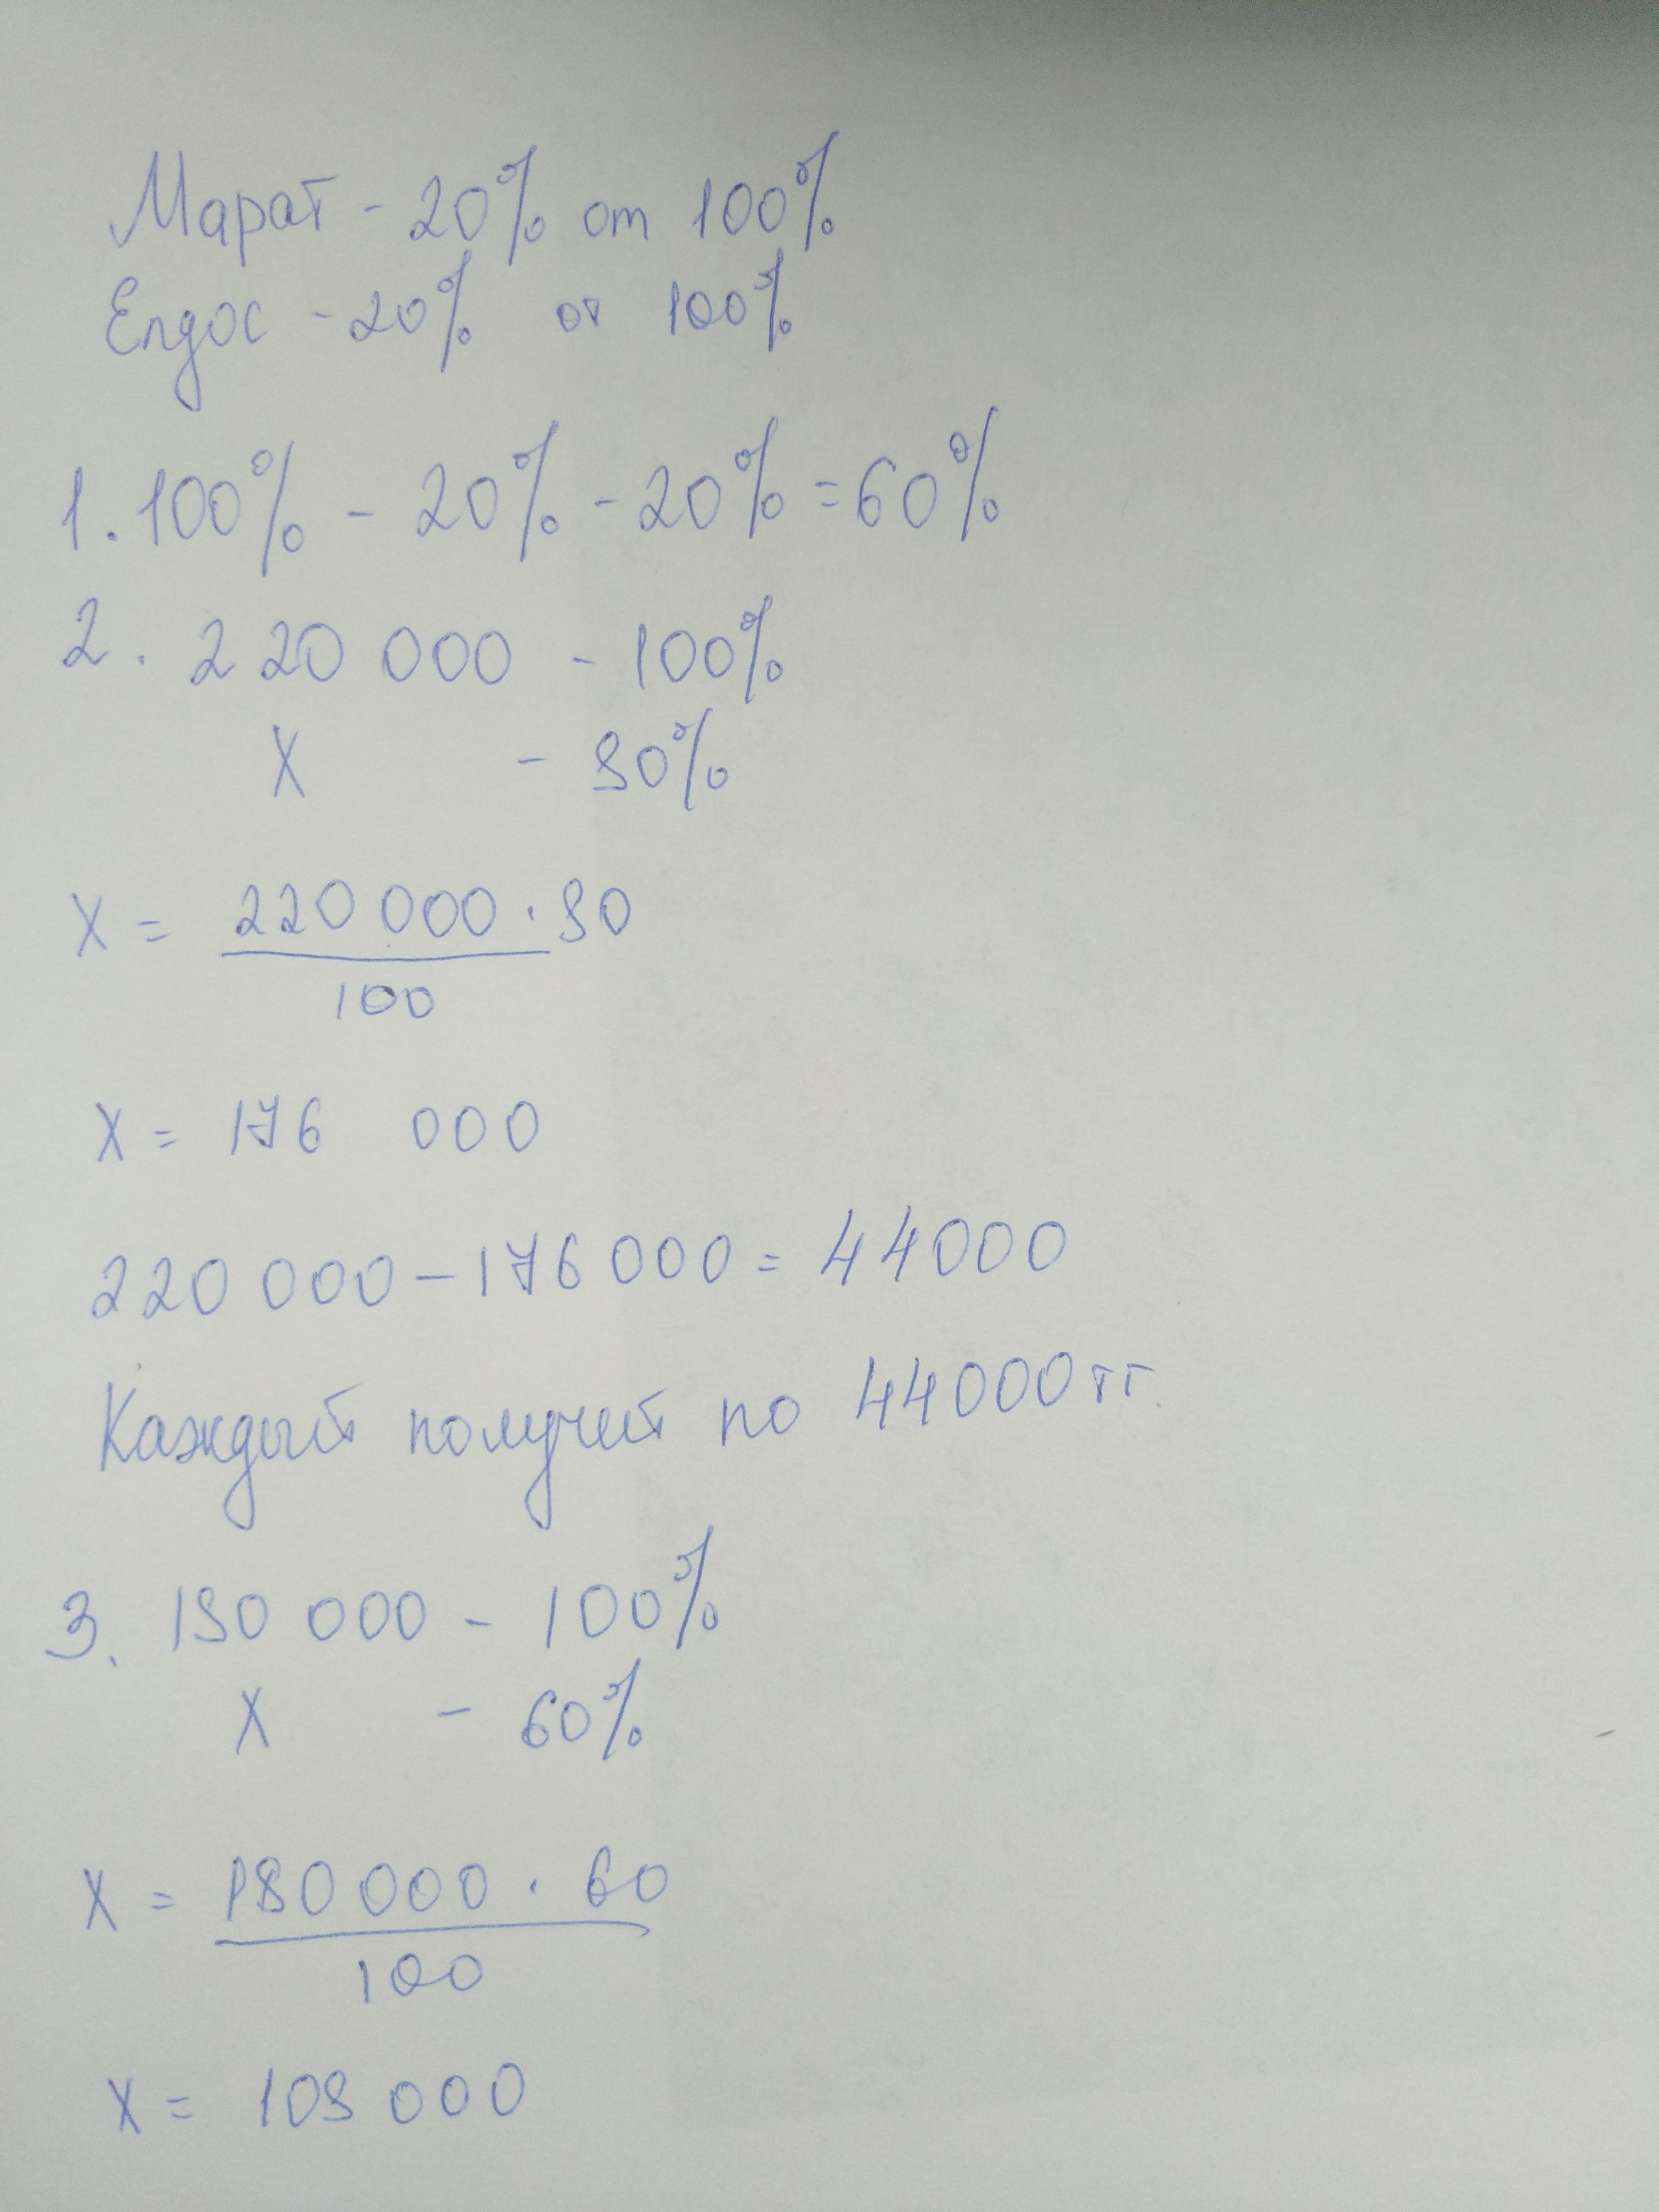 Марат - 20% от 100%
Елдос - 20% от 100%
1. 100% - 20% - 20% = 60%
2. 220 000 - 100%
X - 80%
X = 220 000 · 80
100
X = 176 000
220 000 - 176 000 = 44000
Каждый получит по 44000 тг.
3. 180 000 - 100%
X - 60%
X = 180 000 · 60
100
X = 108 000